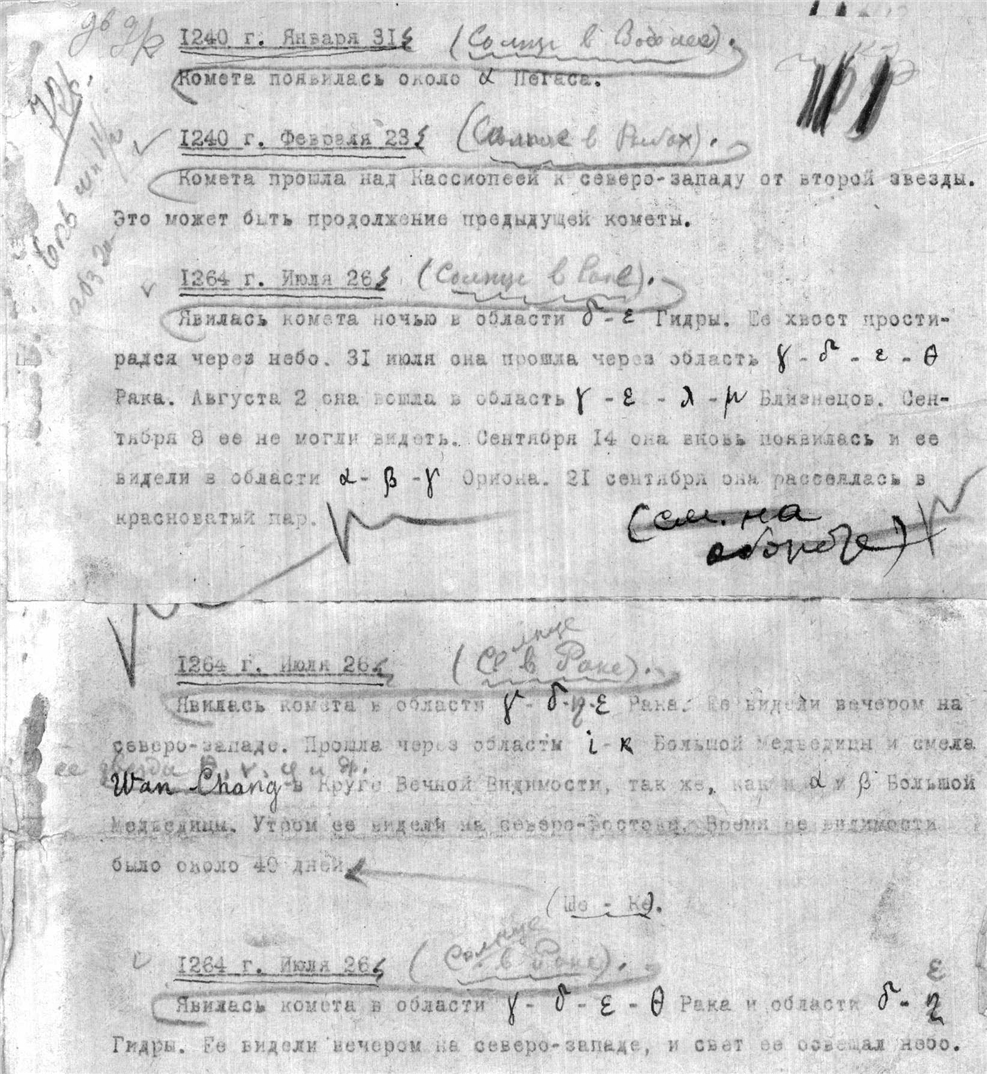 1240 г. Января 31 (Солнце в Водолее).
Комета появилась около α Пегаса.
1240 г. Февраля 23 (Солнце в Рыбах).
Комета прошла над Кассиопеей к северо-западу от второй звезды.
Это может быть продолжение предыдущей кометы.
1264 г. Июля 26 (Солнце в Раке).
Явилась комета ночью в области δ - ε Гидры. Ее хвост прости-
рался через небо. 31 июля она прошла через область γ - δ - ε - θ
Рака. Августа 2 она вошла в область γ - ε - λ - μ Близнецов. Сен-
тября 8 ее не могли видеть. Сентября 14 она вновь появилась и ее
видели в области α - β - γ Ориона. 21 сентября она рассеялась в
красноватый пар.
(см. на
обороте)
1264 г. Июля 26 (Солнце в Раке).
Явилась комета в области γ - δ - η - ε Рака. Ее видели вечером на
северо-западе. Прошла через области ι - κ Большой Медведицы и смела
Wan Chang в Круге Вечной Видимости, так же, как и α и β Большой
Медведицы. Утром ее видели на северо-востоке. Время ее видимости
было около 40 дней
(Ше - Ке).
1264 г. Июля 26 (Солнце в Раке).
Явилась комета в области γ - δ - ε - θ Рака и области δ - ε η
Гидры. Ее видели вечером на северо-западе, и свет ее освещал небо.